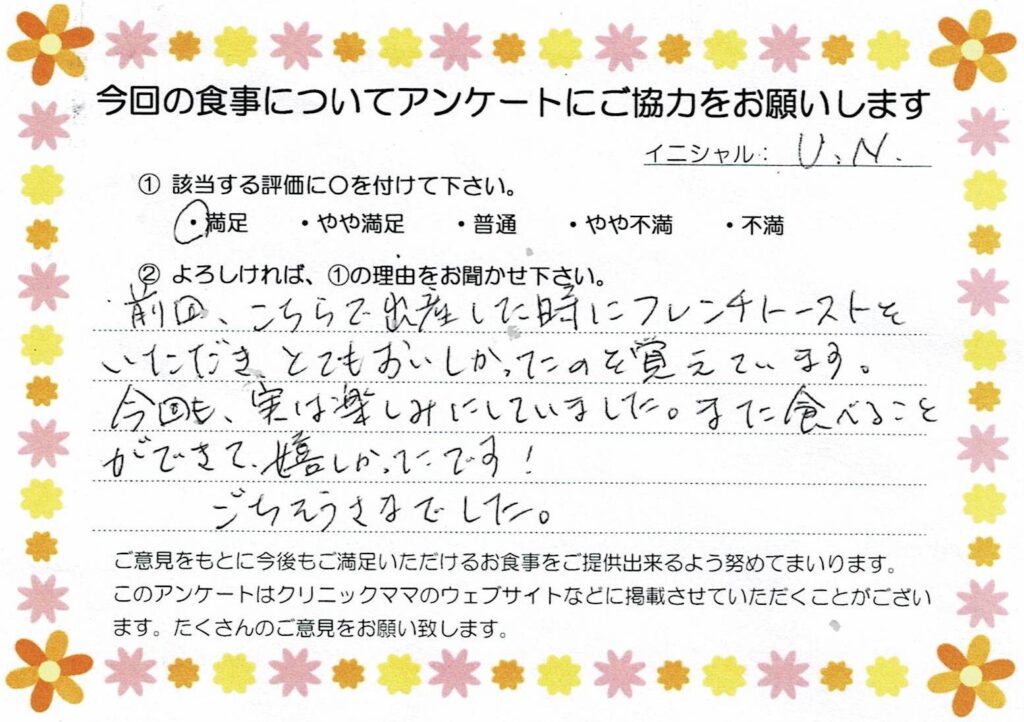 今回の食事についてアンケートにご協力をお願いします
イニシャル： U.N.
① 該当する評価に○を付けて下さい。
・満足 ・やや満足 ・普通 ・やや不満 ・不満
② よろしければ、①の理由をお聞かせ下さい。
前回、こちらで出産した時にフレンチトーストを
いただき、とてもおいしかったのを覚えています。
今回も、実は楽しみにしていました。また食べること
ができて、嬉しかったです！
ごちそうさまでした。
ご意見をもとに今後もご満足いただけるお食事をご提供出来るよう努めてまいります。
このアンケートはクリニックママのウェブサイトなどに掲載させていただくことがござい
ます。たくさんのご意見をお願い致します。